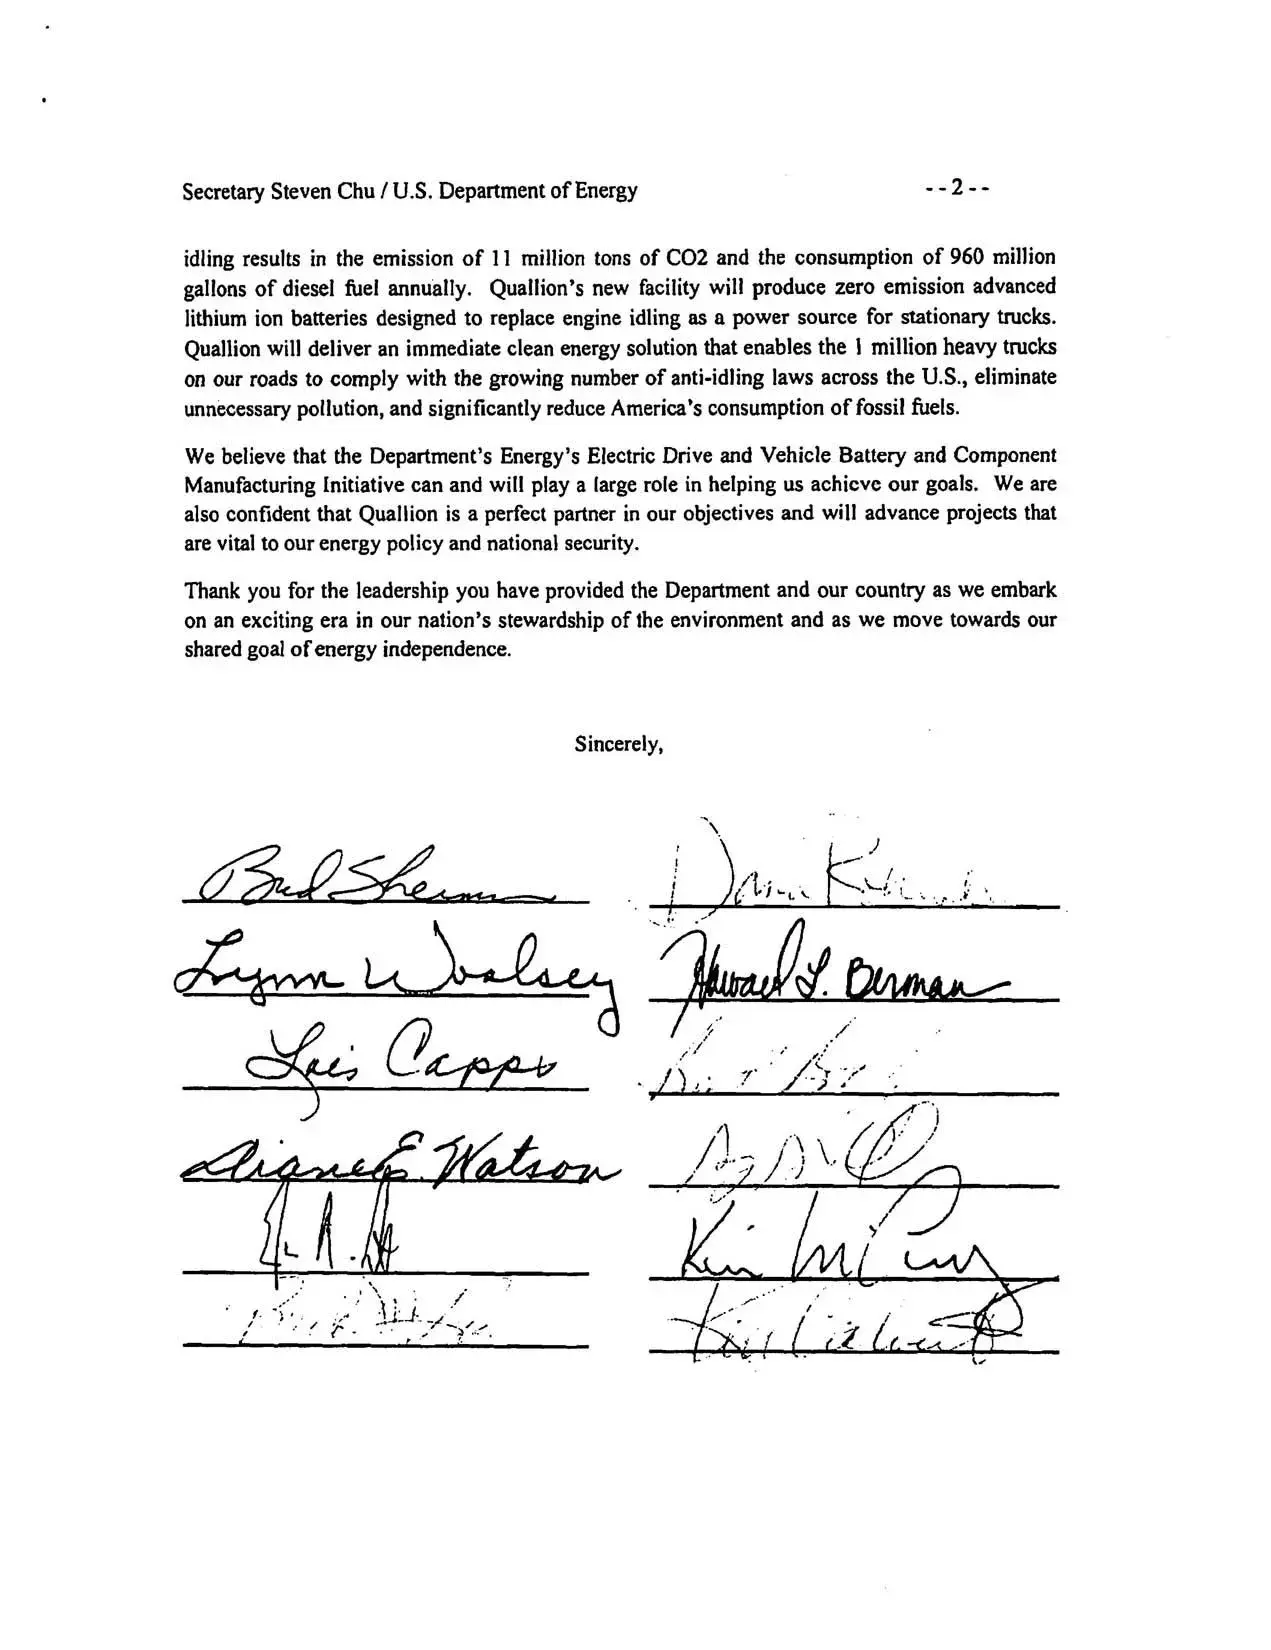 Secretary Steven Chu / U.S. Department of Energy - - 2 - -
idling results in the emission of 11 million tons of CO2 and the consumption of 960 million
gallons of diesel fuel annually. Quallion's new facility will produce zero emission advanced
lithium ion batteries designed to replace engine idling as a power source for stationary trucks.
Quallion will deliver an immediate clean energy solution that enables the 1 million heavy trucks
on our roads to comply with the growing number of anti-idling laws across the U.S., eliminate
unnecessary pollution, and significantly reduce America's consumption of fossil fuels.
We believe that the Department's Energy's Electric Drive and Vehicle Battery and Component
Manufacturing Initiative can and will play a large role in helping us achieve our goals. We are
also confident that Quallion is a perfect partner in our objectives and will advance projects that
are vital to our energy policy and national security.
Thank you for the leadership you have provided the Department and our country as we embark
on an exciting era in our nation's stewardship of the environment and as we move towards our
shared goal of energy independence.
Sincerely,
Brad Sherman
Lynn Woolsey Howard L. Berman
Lois Capps
Diane E. Watson
Kevin McCarthy
Ken Calvert